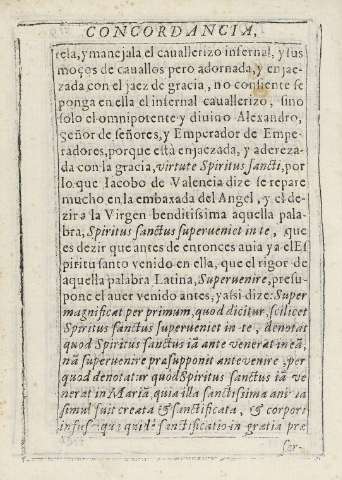 CONCORDANCIA,
rela, y manejala el cauallerizo infernal, y sus
moços de cauallos pero adornada, y enjae-
zada con el jaez de gracia, no consiente se
ponga en ella el infernal cauallerizo, sino
sólo el omnipotente y diuino Alexandro,
señor de señores, y Emperador de Empe-
radores, porque està enjaezada, y adereza-
da con la gracia, virtute Spiritus sancti, por
lo que Iacobo de Valencia dize se repare
mucho en la embaxada del Angel, y el de-
zir a la Virgen benditissima aquella pala-
bra, Spiritus sanctus superueniet in te, que
es dezir que antes de entonces auia ya el Es
piritu santo venido en ella, que el rigor de
aquella palabra Latina, Superuenire, presu-
pone el auer venido antes, y assi dize: Super
magnificat per primum, quod dicitur, scilicet
Spiritus sanctus superueniet in te, denotat
quod Spiritus sanctus iã ante venerat in eã,
nã superuenire prasupponit anteuenire, per
quod denotatur quòd Spiritus sanctus iã ve
nerat in Mariã, quia illa sanctissima ani
simul fuit creata & sanctificata, & corpori
sanctificatio in gratia præ
ser-